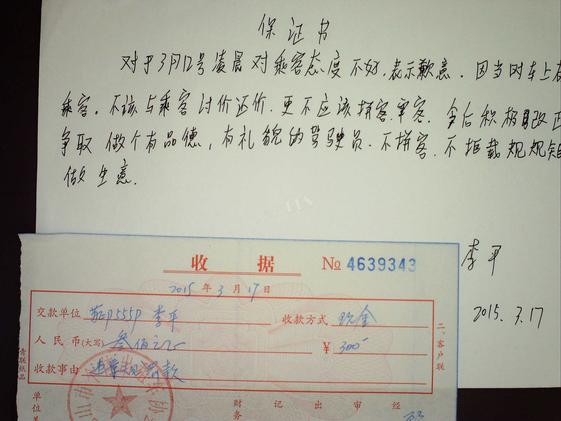 保证书
对于3月12号凌晨对乘客态度不好.表示歉意.因当时车上有
乘客.不该与乘客讨价还价.更不应该拼客宰客.今后积极改正
争取做个有品德,有礼貌的驾驶员.不拼客.不拒载规规矩
做生意.
李平
2015.3.17
收据
№ 4639343
2015年3月17日
交款单位 李平 收款方式 现金
人民币(大写) 叁佰元 ¥ 300
收款事由 违章 罚款
二、客户联
财务
记
出
审
经